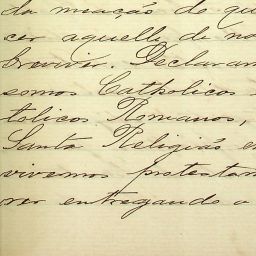 da meação de que
cer aquelle de nos
breviver. Declaram
somos Catholicos
tolicos Romanos,
Santa Religião e
vivemos protestam
rer entregando o